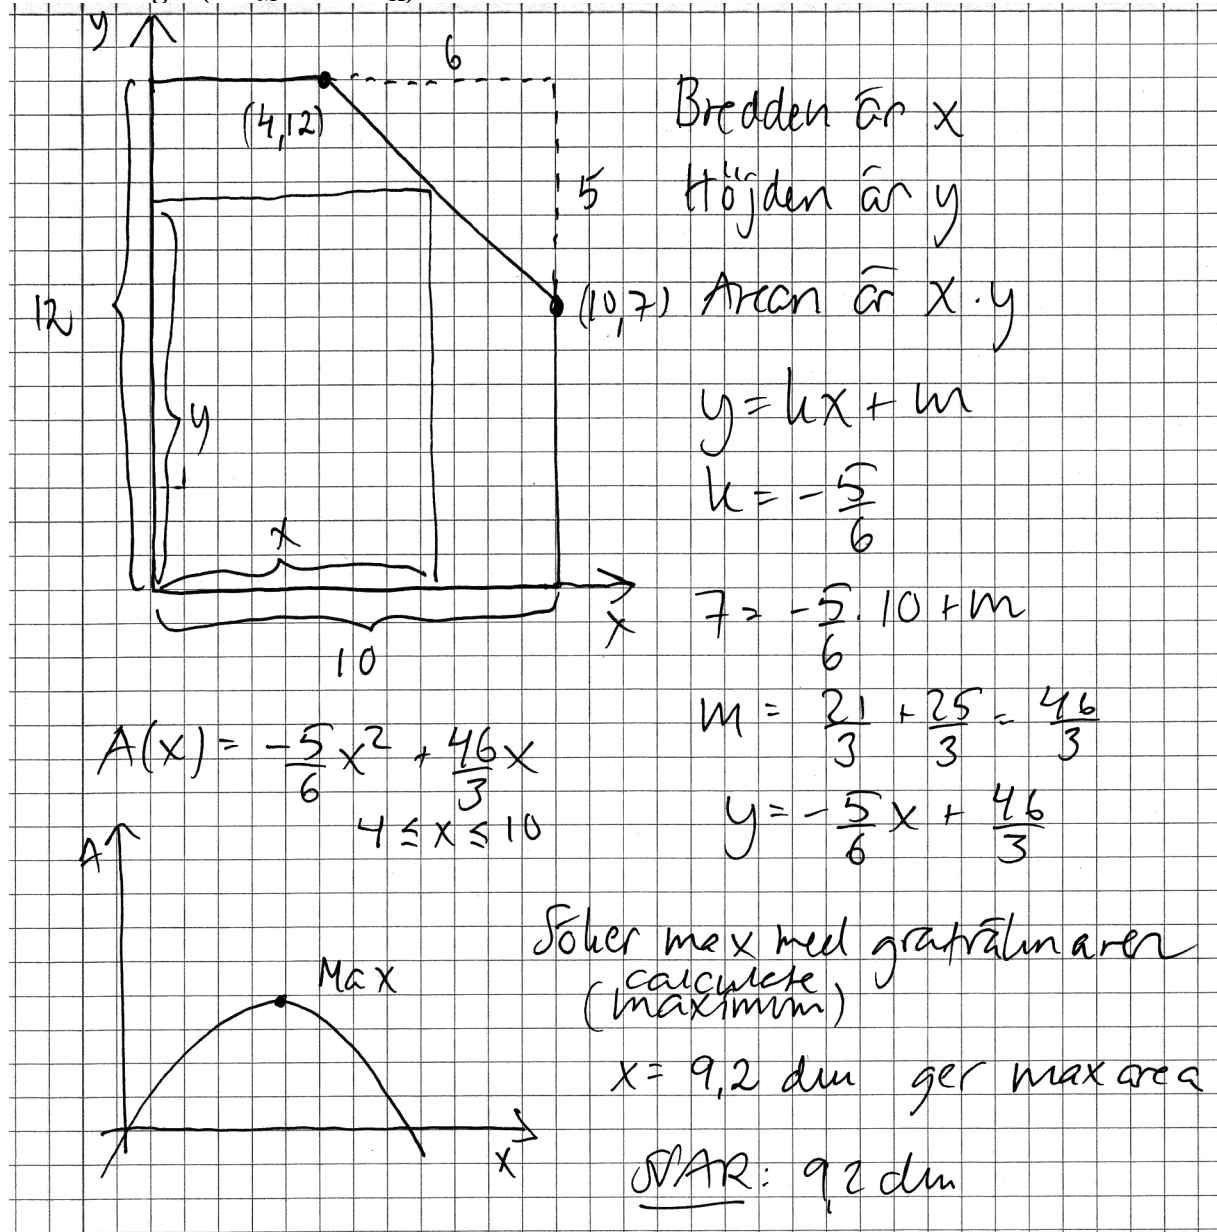 y
6
(4,12)
5
12
(10,7)
y
x
x
10
Bredden är x
Höjden är y
Arean är x·y
y = kx + m
k = -5/6
7 = -5/6 · 10 + m
m = 21/3 + 25/3 = 46/3
y = -5/6 x + 46/3
A(x) = -5/6 x² + 46/3 x
4 ≤ x ≤ 10
A
Max
x
Söker max med grafräknaren
calculate
(maximum)
x = 9,2 dm ger max area
SVAR: 9,2 dm